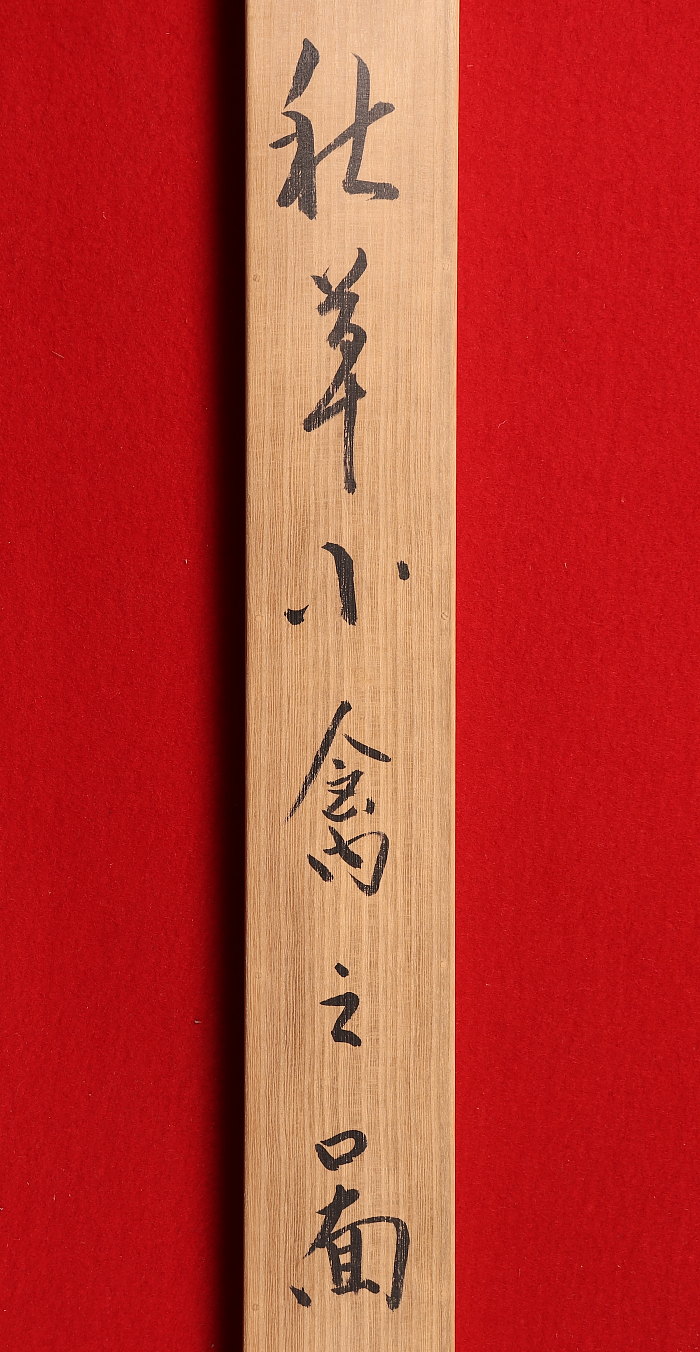 秋草小禽之啚